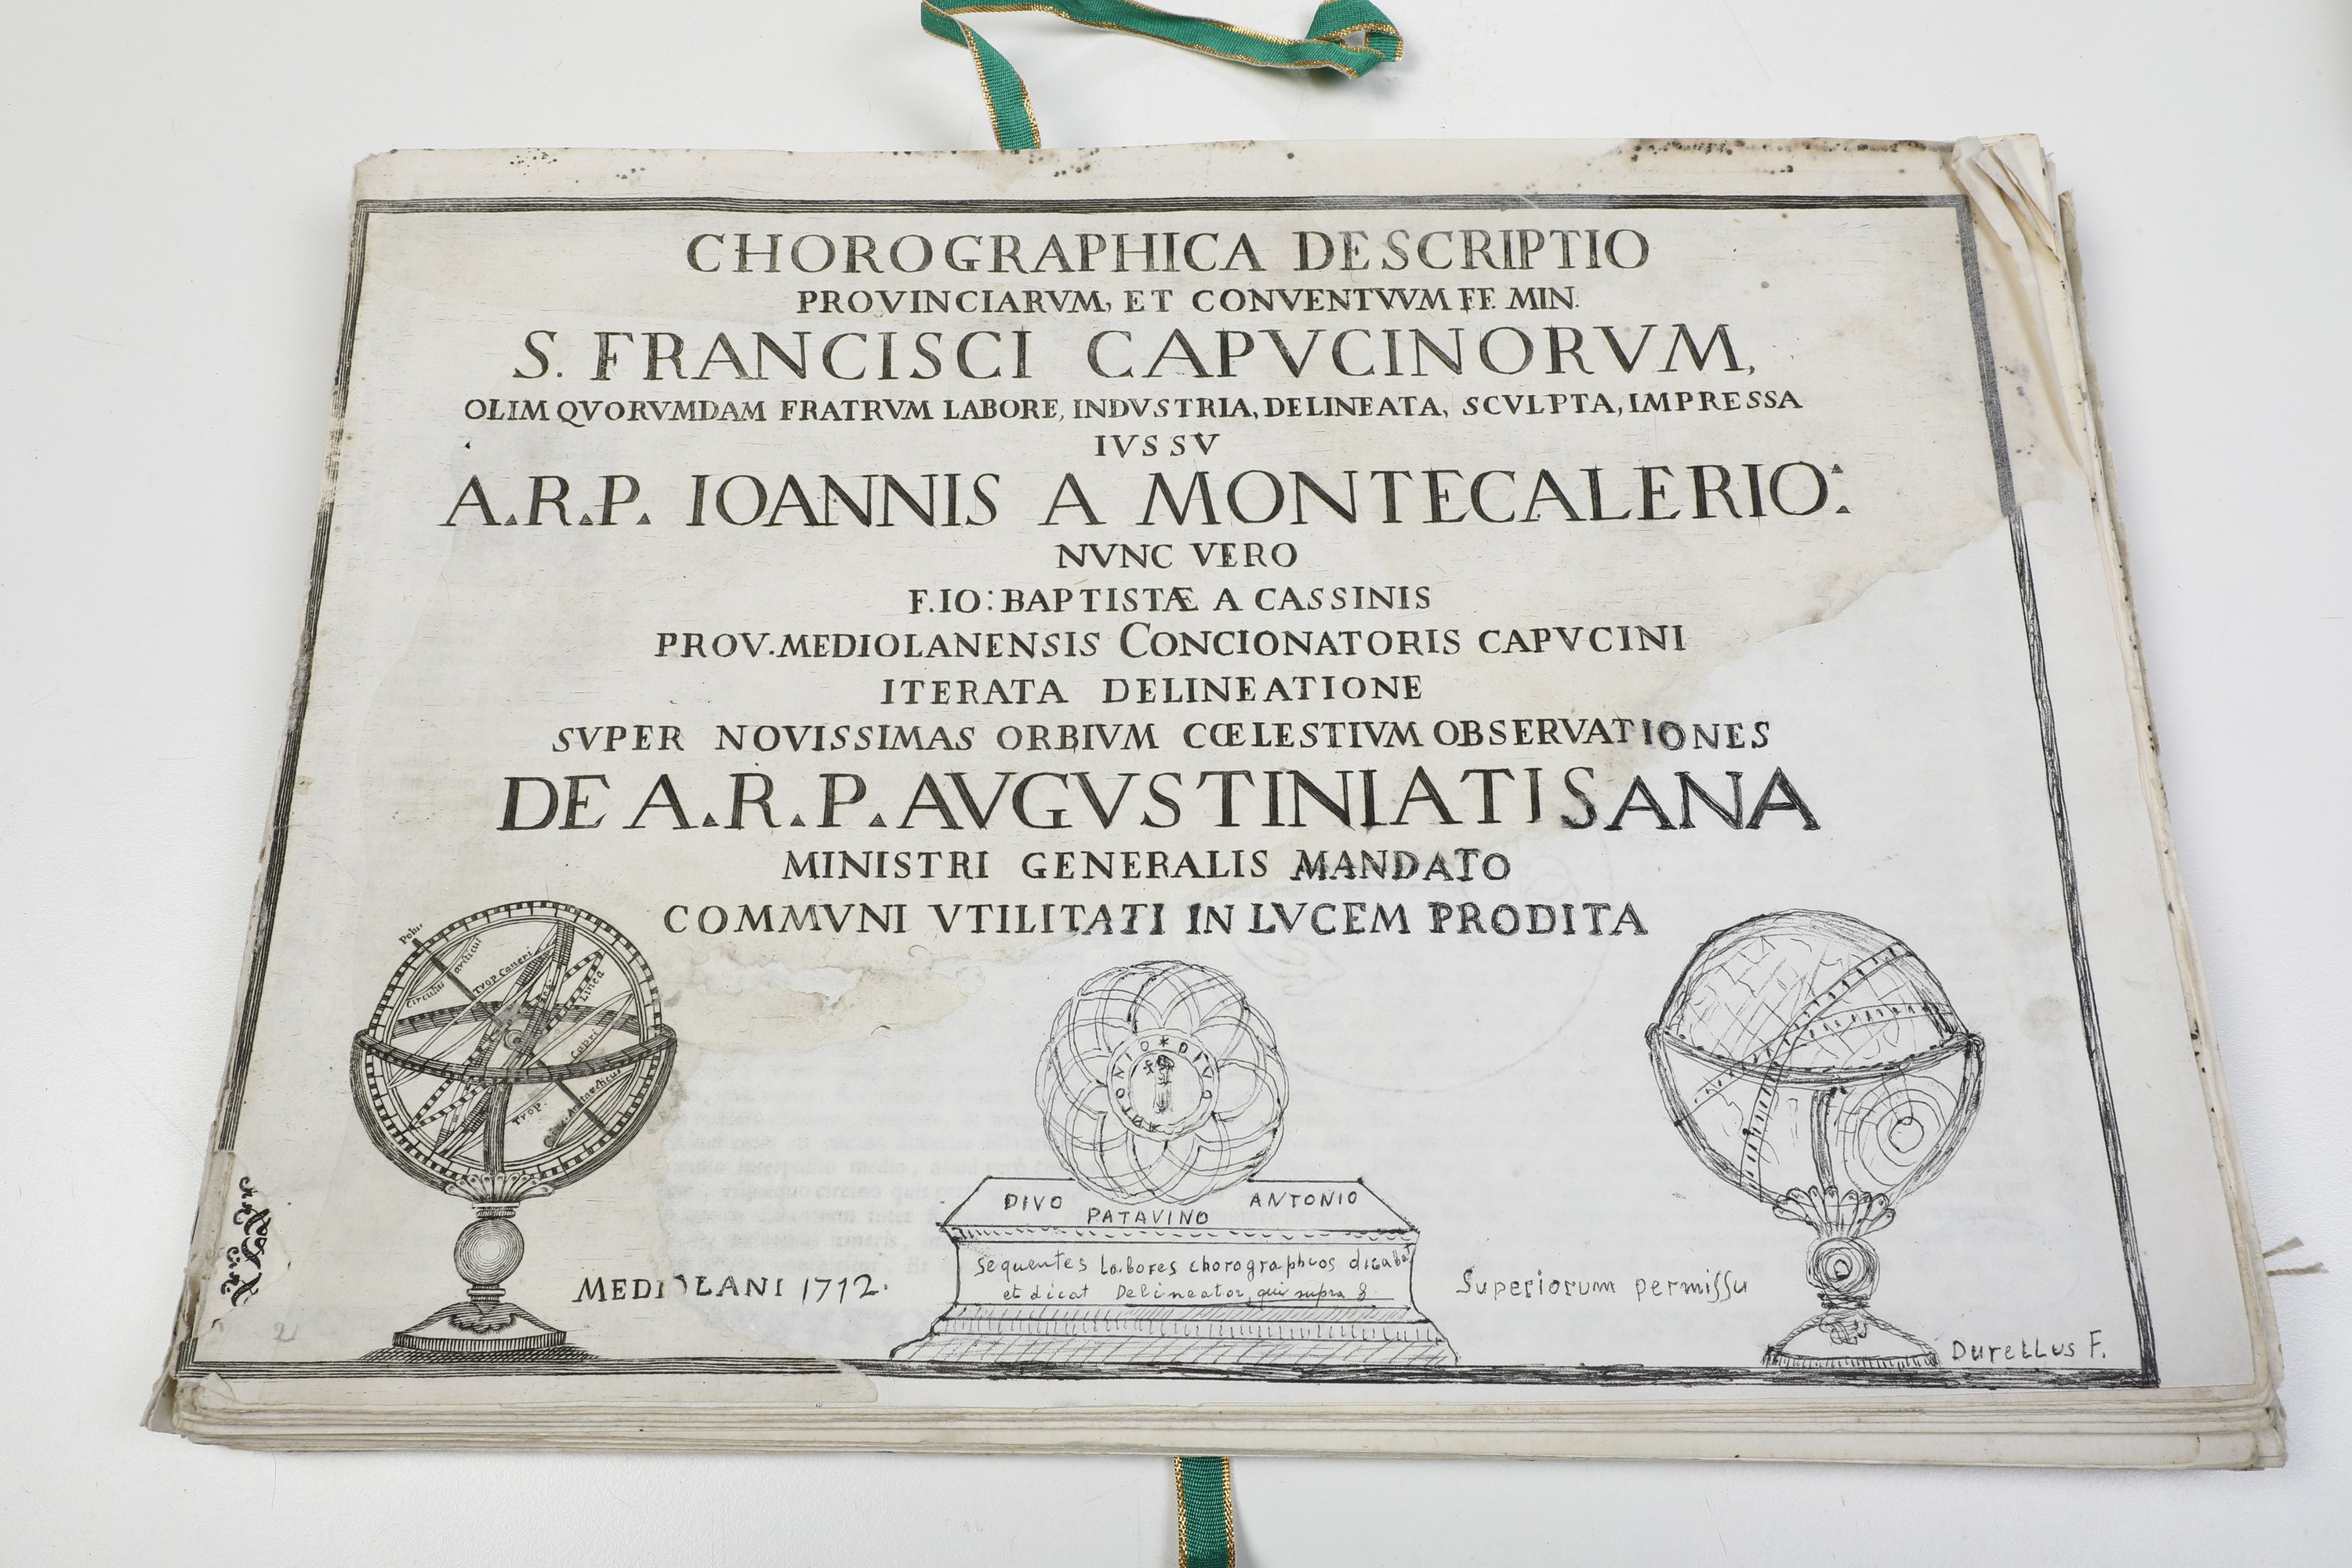 CHOROGRAPHICA DESCRIPTIO
PROVINCIARVM, ET CONVENTVVM FF. MIN.
S. FRANCISCI CAPVCINORVM,
OLIM QVORVMDAM FRATRVM LABORE, INDVSTRIA, DELINEATA, SCVLPTA, IMPRESSA
IVSSV
A.R.P. IOANNIS A MONTECALERIO:
NVNC VERO
F. IO: BAPTISTÆ A CASSINIS
PROV. MEDIOLANENSIS CONCIONATORIS CAPVCINI
ITERATA DELINEATIONE
SVPER NOVISSIMAS ORBIVM CŒLESTIVM OBSERVATIONES
DE A.R.P. AVGVSTINI A TISANA
MINISTRI GENERALIS MANDATO
COMMVNI VTILITATI IN LVCEM PRODITA
Polus
Circulus arcticus
Trop. Cancri
Linea
Capri
Trop.
Antarcticus
DIVO ANTONIO
DIVO ANTONIO
PATAVINO
Sequentes Labores chorographicos dicabat
et dicat Delineator, qui supra 8
MEDIOLANI 1712.
Superiorum permissu
Durellus F.